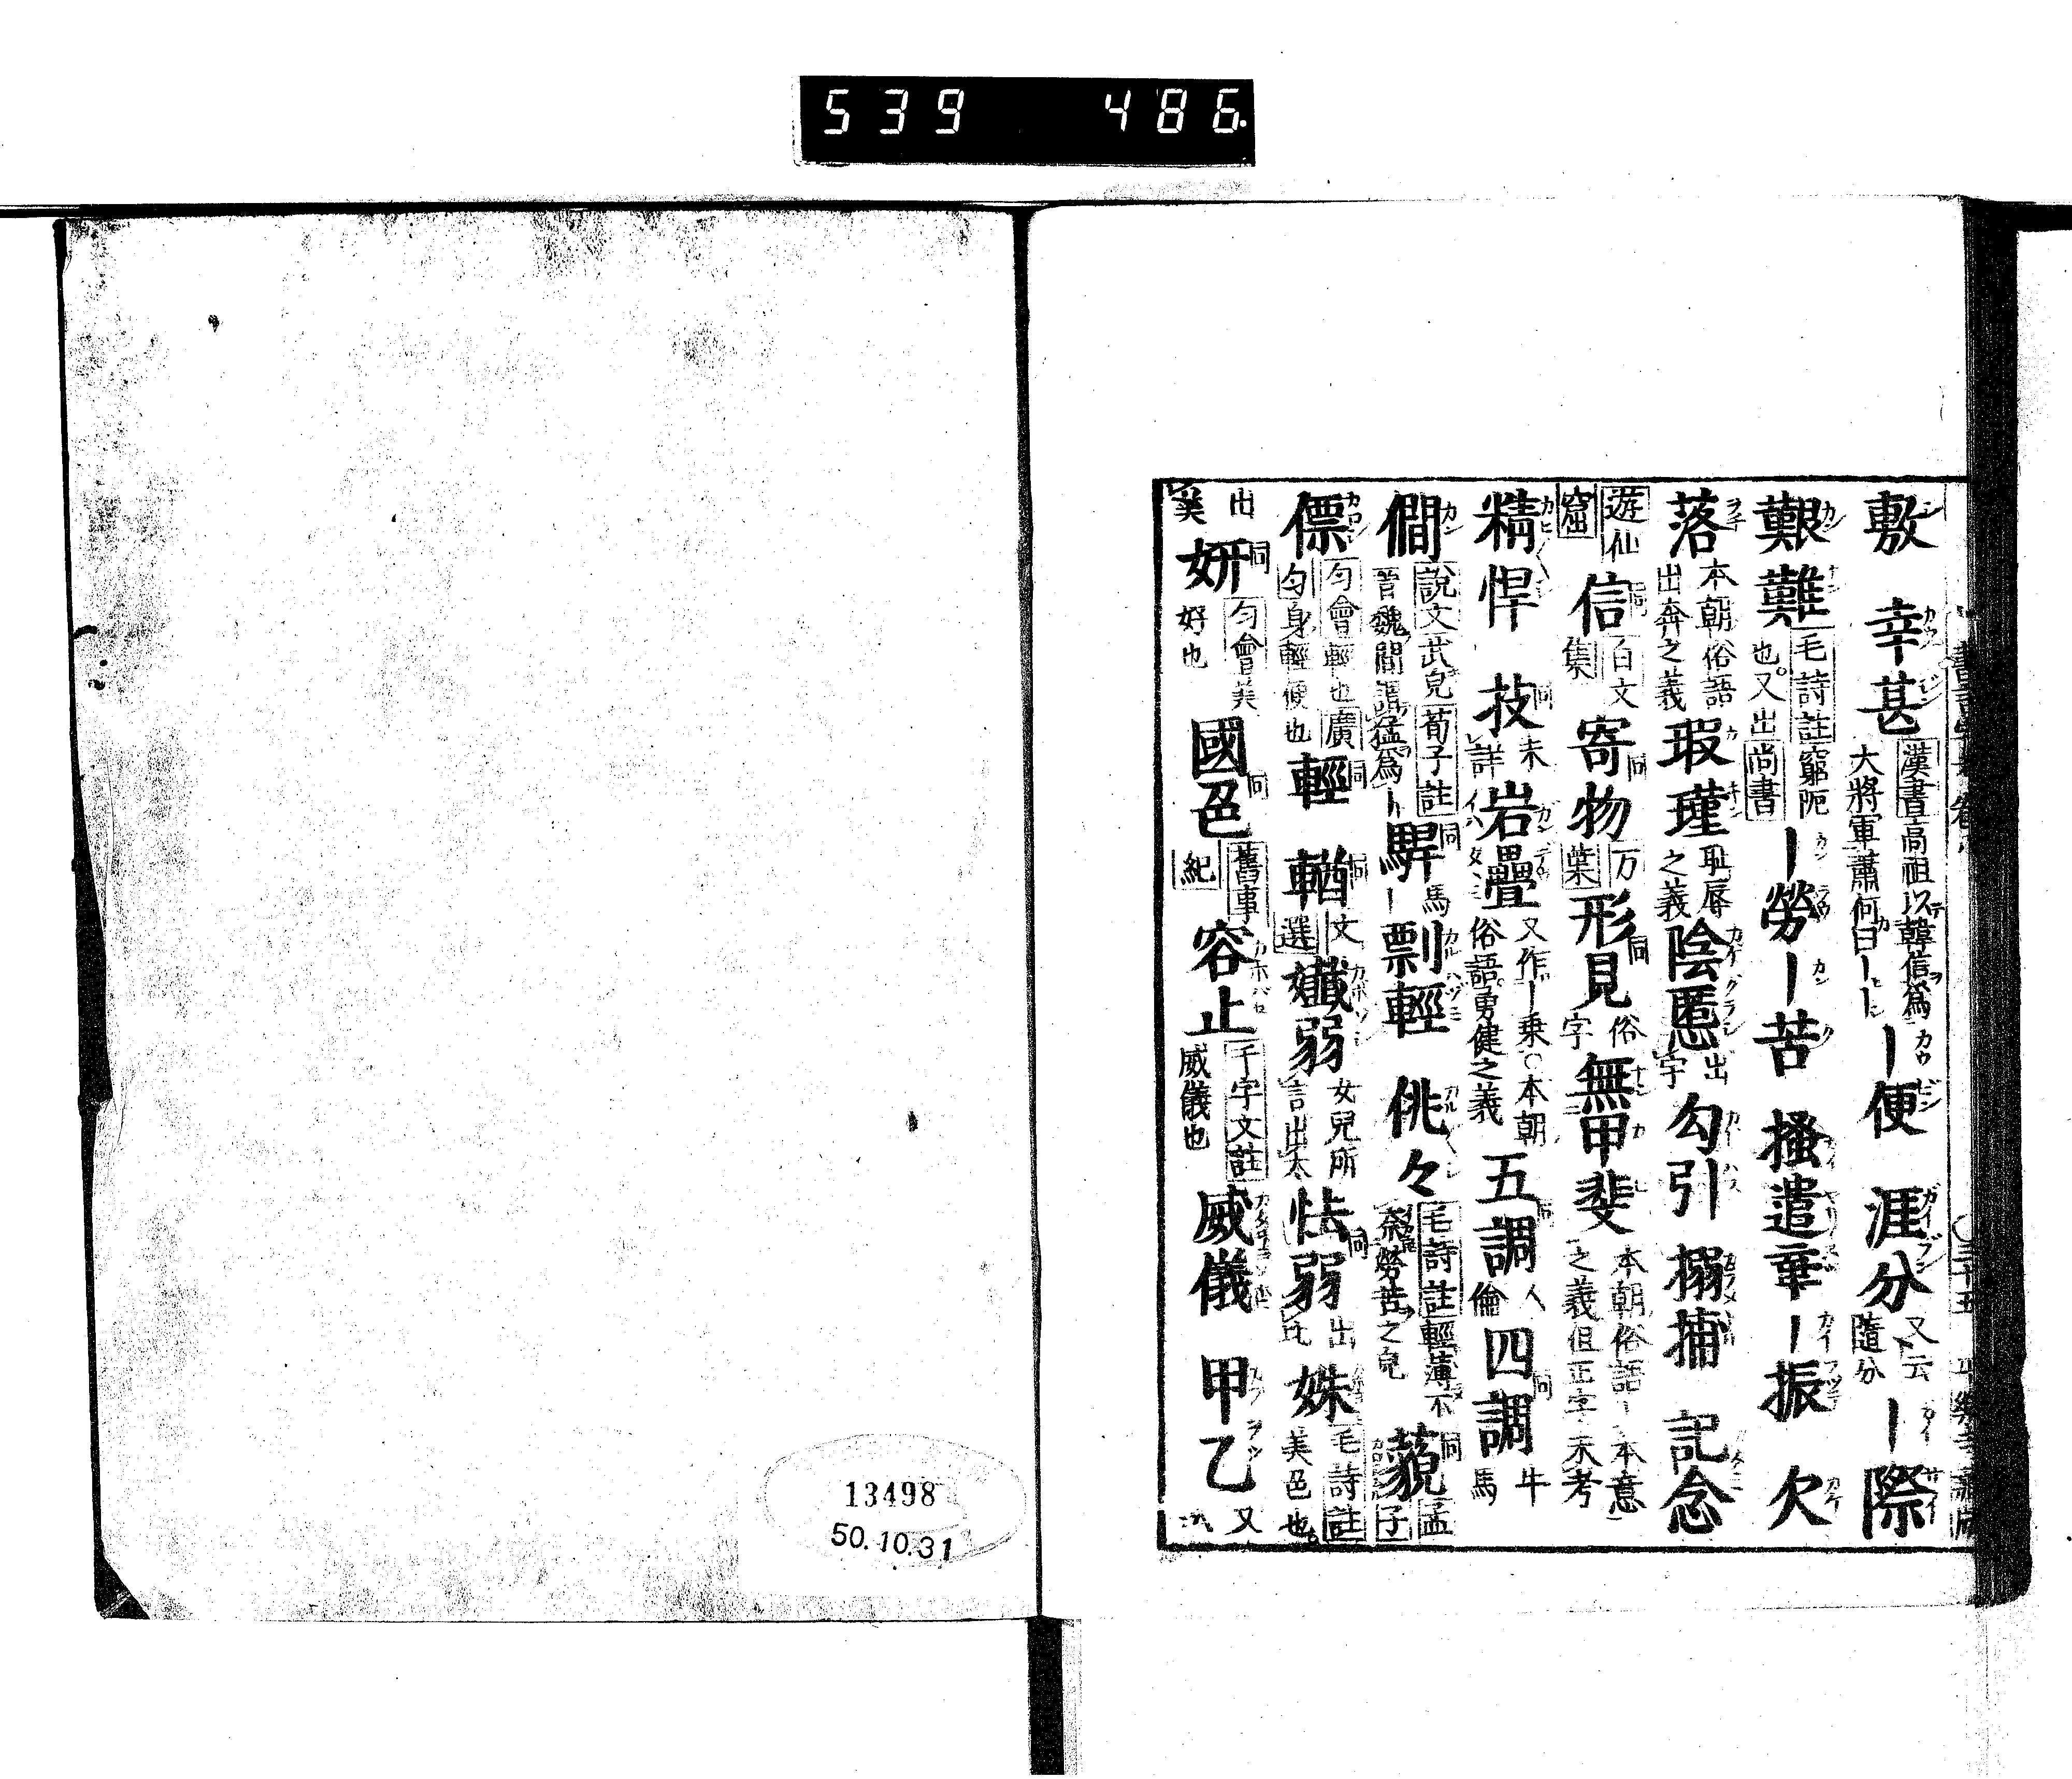 539 486
敷 幸甚 漢書高祖以韓信爲大將軍蕭何曰｜｜ ｜便 涯分 又云隨分 ｜際
艱難 毛詩註窮阨也。又出尚書 ｜勞｜苦 搔遣 ｜振 欠
落 本朝俗語出奔之義 瑕瑾 耻辱之義 陰慝 出字 勾引 搦捕 記念
遊仙窟 信 白文集 寄物 万葉 形見 俗字 無甲斐 本朝俗語｜本意之義但正字未考
精悍 技 未詳 岩疊 又作｜乗○本朝俗語勇健之義 五調 人倫 四調 牛馬
僩 說文武皃荀子註晉魏間謂猛爲｜ 駻 馬｜ 剽輕 佻々 毛詩註輕薄不奈勞苦之皃 藐 孟子
僄 匀會輕也廣匀身輕便也 輕 輶 文選 孅弱 女兒所言出太 怯弱 出 姝 毛詩註美色也
出 妍 匀會美好也 國色 舊事紀 容止 千字文註威儀也 威儀 甲乙 又
13498
50.10.31